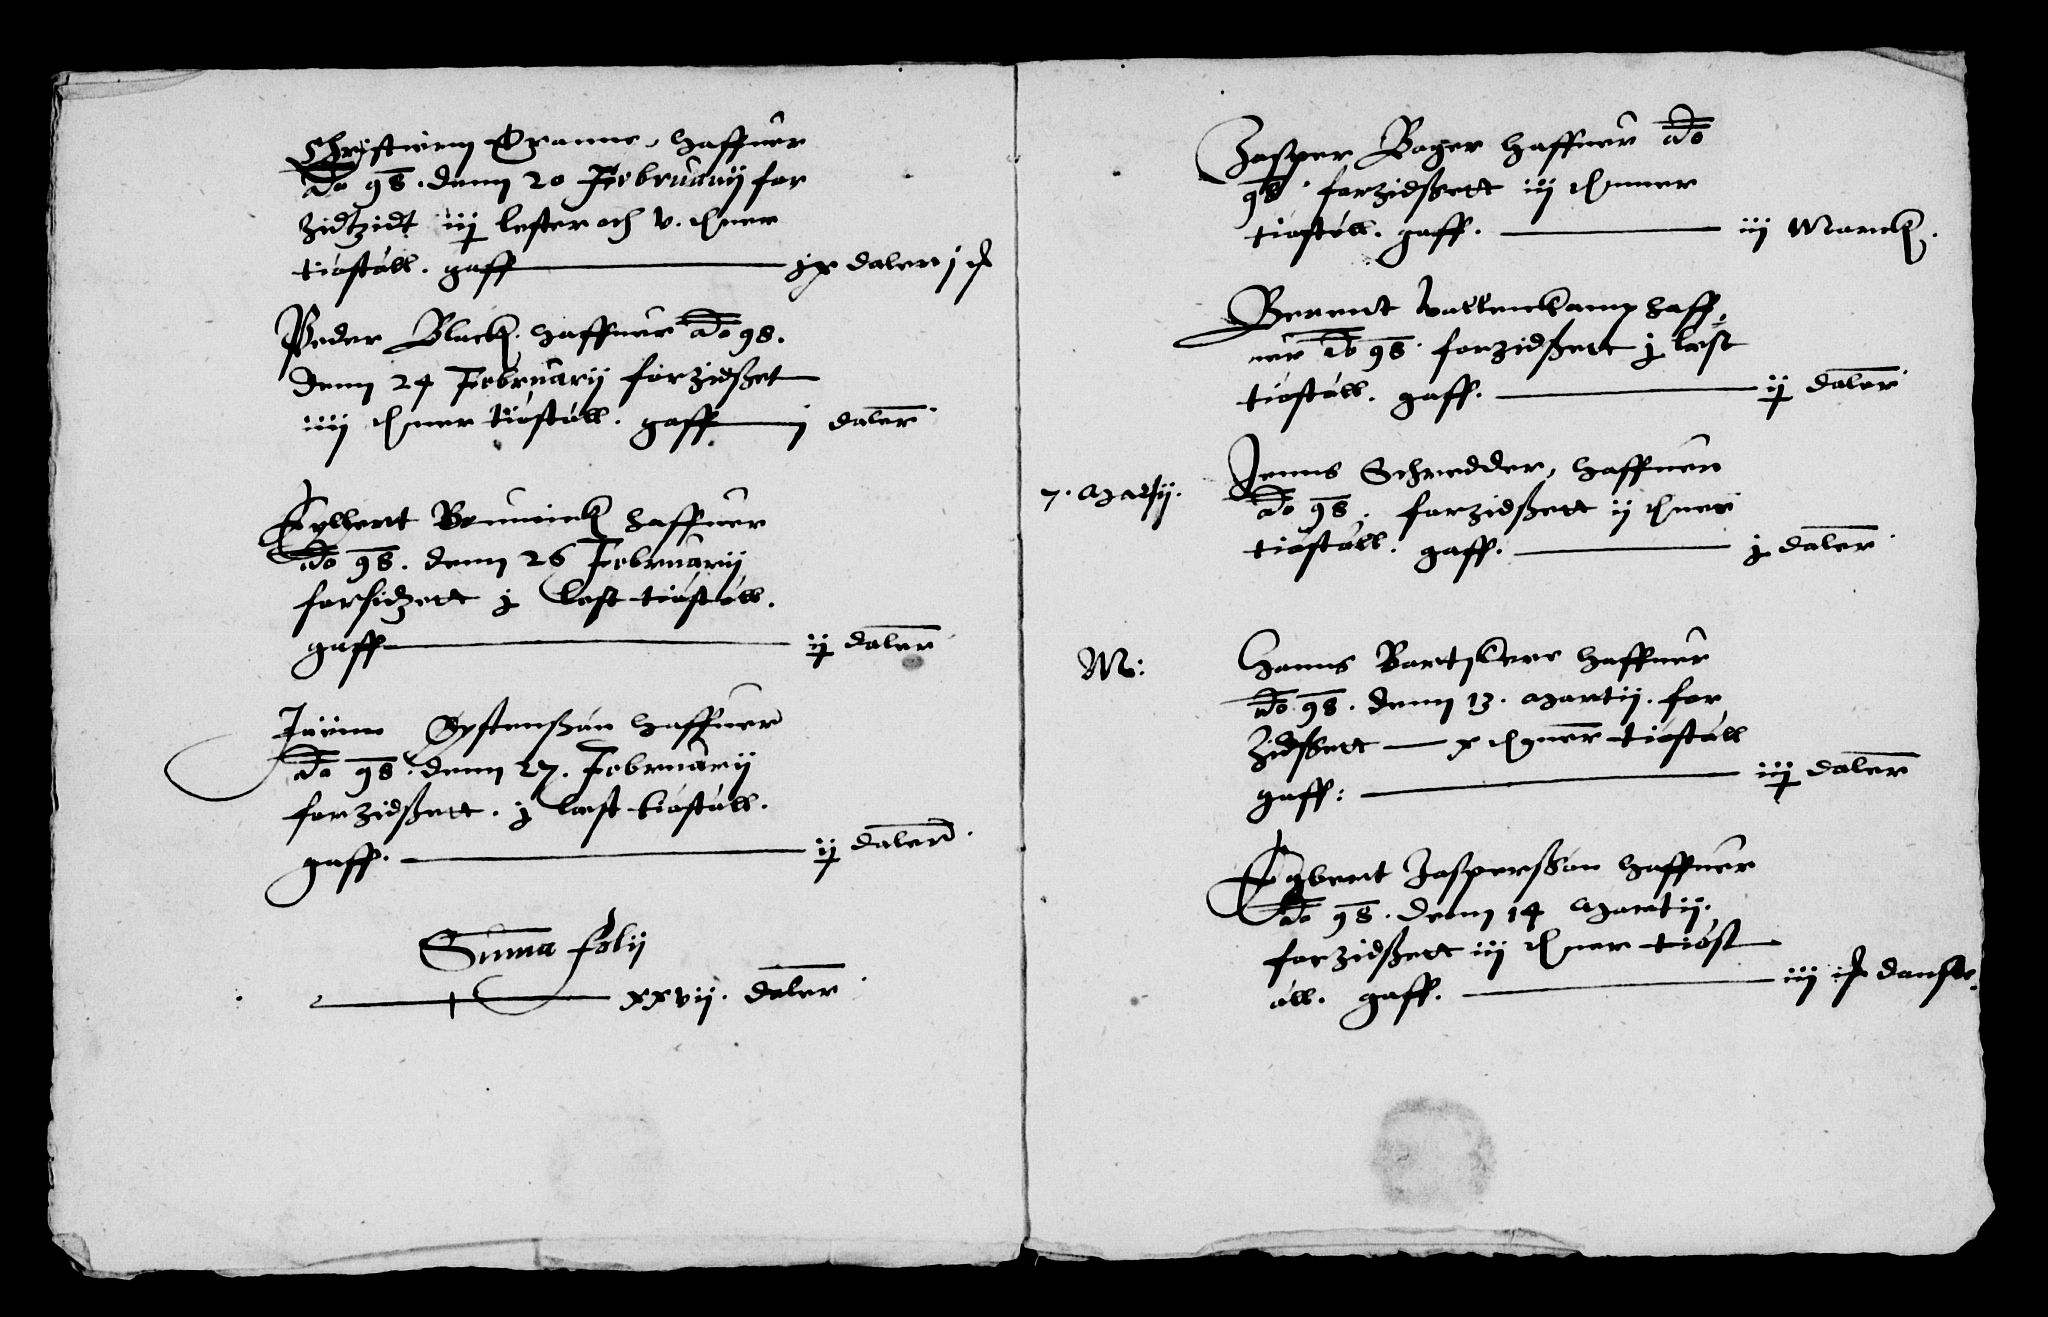 Christienn Tranne, haffuer
Ao 98. denn 20 Februarij for
zidtzidt iij lester och v. thner
tiøstøll. gaff ix daler j
Peder Black haffuer Ao 98.
denn 24 Februarij forzidszet
iiij thner tiøstøll. gaff j daler
Eylbert Brunninck haffuer
Ao 98. denn 26 Februarij
forsidzett j lest tiøstøll.
gaff ij daler
Øystenszøn haffuer
Ao 98. denn 27. Februarij
forzidszett. j lest tiøstøll.
gaff. ij daler
Summa folij
xxvij. daler
Jasper Bager haffuer Ao
98. forzidszett iij thner
tiøstøll. gaff. iij Marck.
Berent vallenkamp haff,
uer Ao 98. forzidszett j lest
tiøstøll. gaff. ij daler
7. Martij.
Jenns Schredder, haffuer
Ao 98. forzidszett ij thner
tiøstøll. gaff. j daler
M:
Hanns Bartskere haffuer
Ao 98. denn 13. Martij. for
zidszett x thner tiøstøll
gaff: iiij daler
Egbert Jasperszøn haffuer
Ao 98. denn 14 Martij.
forzidszett iij thner tiøst
øll. gaff. iij danske.